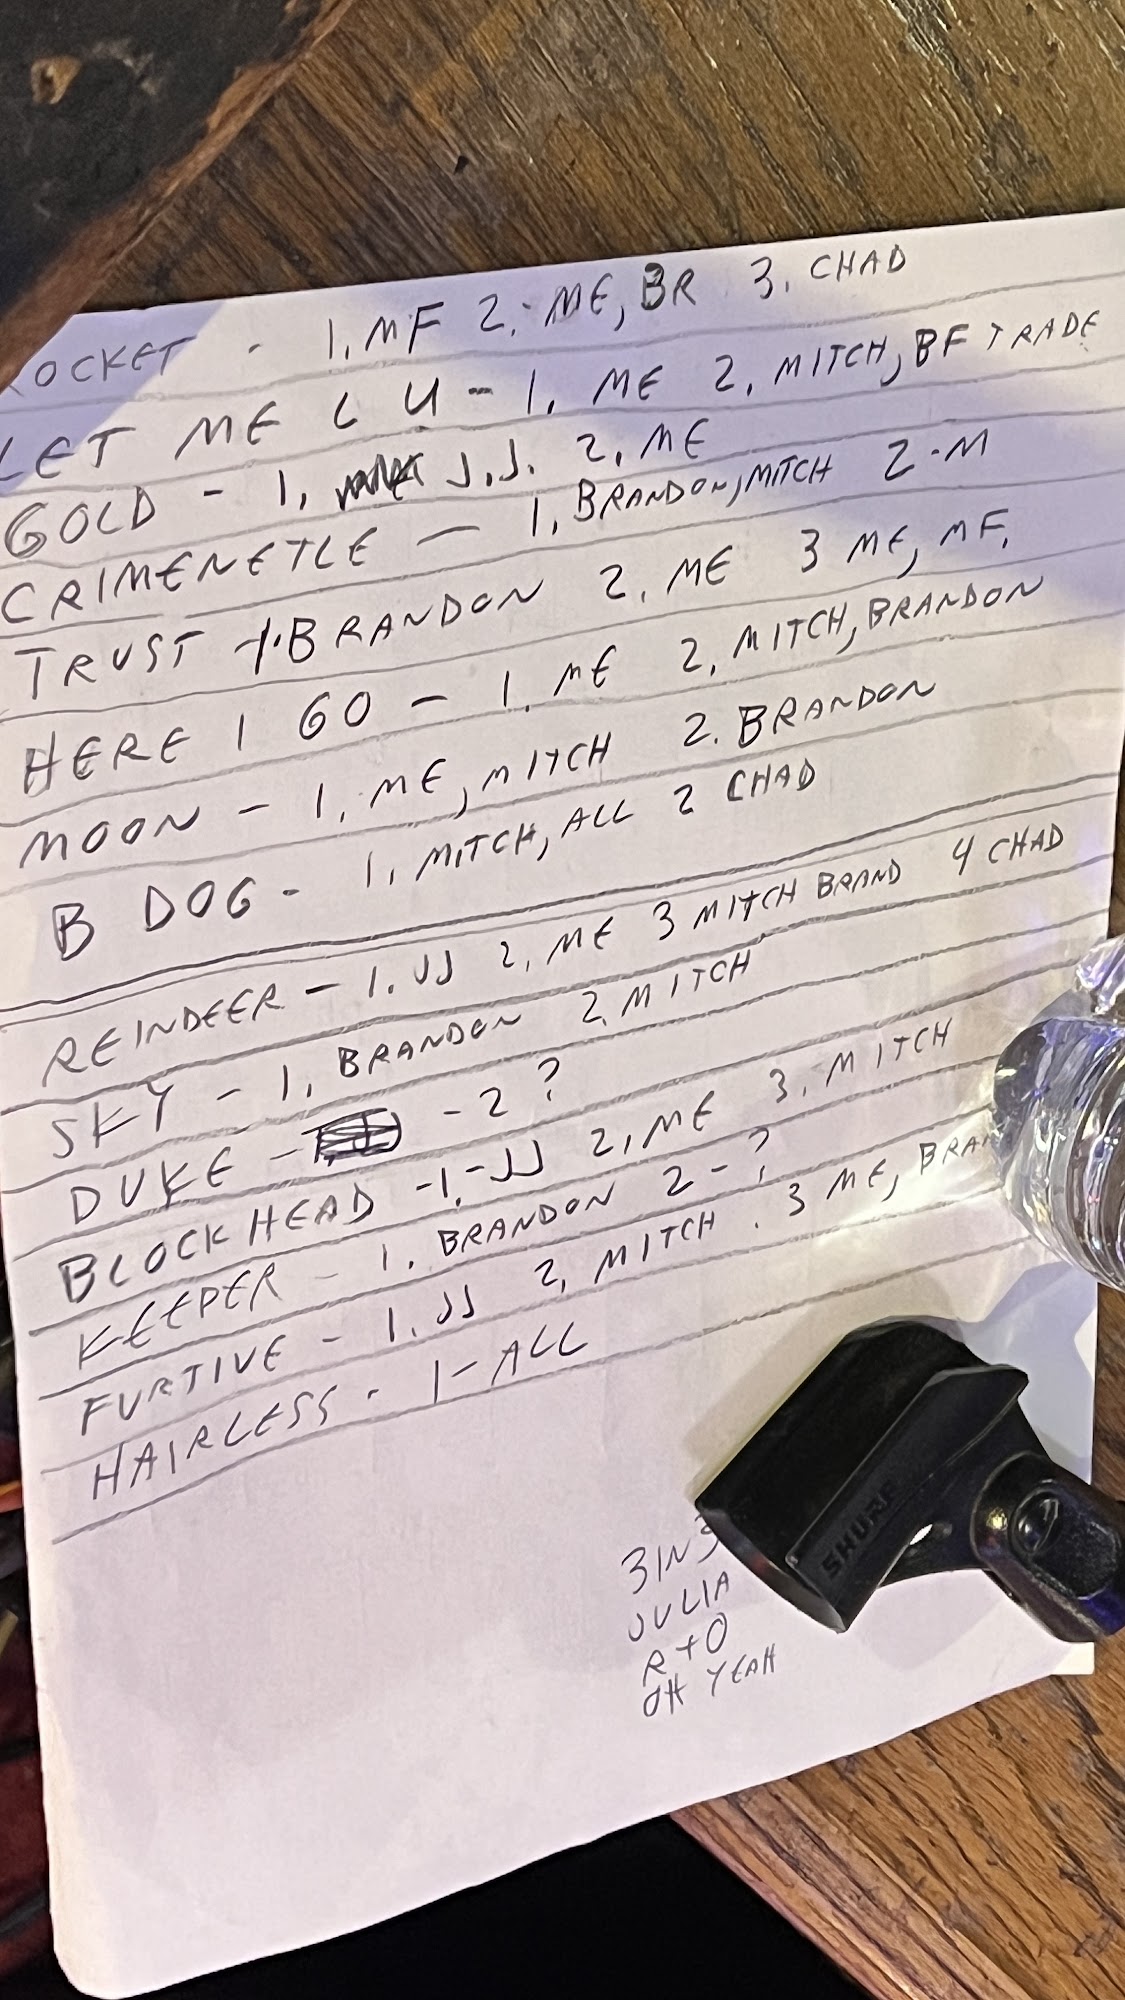 ROCKET - 1. MF 2. ME, BR 3. CHAD
LET ME C U - 1. ME 2. MITCH, BF TRADE
GOLD - 1. J.J. 2. ME
CRIMENETLE - 1. BRANDON, MITCH 2-M
TRUST 1. BRANDON 2. ME 3 ME, MF.
HERE I GO - 1. ME 2. MITCH, BRANDON
MOON - 1. ME, MITCH 2. BRANDON
B DOG - 1. MITCH, ALL 2 CHAD
REINDEER - 1. JJ 2. ME 3 MITCH BRAND 4 CHAD
SKY - 1. BRANDON 2. MITCH
DUKE - - 2 ?
BLOCKHEAD - 1. - JJ 2. ME 3. MITCH
KEEPER - 1. BRANDON 2 - ?
FURTIVE - 1. JJ 2. MITCH . 3 ME, BRAN
HAIRLESS - 1 - ALL
3 IN 3
JULIA
R + O
OH YEAH
SHURE